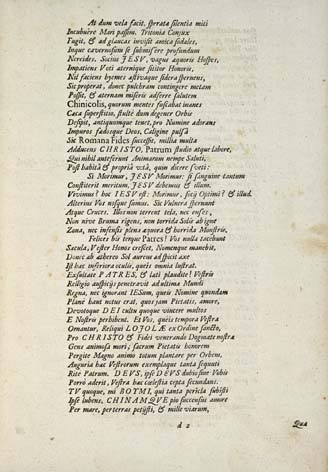 At dum vela facit, sperata silentia miti
Incubuêre Mari passim. Tritonia Conjux
Fugit, & ad glaucas invisit antica sedales,
Inque cavernosum se submisere profundum
Nereides. Sicius JESV, vagus aquoris Hospes,
Impatiens Voti aternique sititor Honoris,
Nil faciens hyemes astivaque sidera spernens,
Sic properat, donec pulchram contingere metam
Posset, & aternam miseris adferre salutem
Chinicolis, quorum mentes fuscabat inanes
Caca superstitio, stultè dum degener Orbis
Despit, antiquumque tenet, pro Numine adorans
Impuros fadisque Deos, Caligine pulsâ
Sic Romana Fides successit, millia multa
Adducens CHRISTO, Patrum studio atque labore,
Qui nihil anteferunt Animarum nempe Saluti,
Post habitâ & propriâ vitâ, quin dicere sveti:
Si Morimur, JESV Morimur: si sanguine tantum
Constiterit meritum, JESV debemus & illum.
Vivimus? hoc JESV est: Morimur, sicq́ Optimè? & illud.
Alterius Vos nosque sumus. Sic Vulnera spernunt
Atque Cruces. Illos non terrent tela, nec enses,
Non nive Bruma rigens, non torrida Solis ab igne
Zona, nec infensis plena aquora & horrida Monstris,
Felices bis terque Patres! Vos nulla tacebunt
Sacula, Vester Honos crescet, Nomenque manebit,
Donec ab athereo Sol aureus adspicit axe
Ist hac inferiora oculis, queis omnia lustrat.
Exsultate PATRES, & lati plaudite! Vestris
Religio auspicijs penetravit ad ultima Mundi
Regna, nec ignorant IESum, queis Numine quondam
Planè haut notus erat, quos jam Pietatis, amore,
Devotoque DEI cultu quoque vincere multos
E Nostris perhibent. Et Vos, queis tempora Vestra
Ornantur, Reliqui LOJOLÆ ex Ordine sancto,
Pro CHRISTO & Fidei venerando Dogmate nostra
Gens animosa mori; sacrum Pietatis honorem
Pergite Magno animo totum plantare per Orbem,
Auguria hac Vestrorum exemplaque tanta sequuti
Rite Patrum. DEVS, ipse DEVS dubio sine Vobis
Porrò aderit, Vestra hac cœlestia cepta secundans.
TV quoque, mi BOYMI, qui tanta pericla subîsti
Ipse lubens, CHINAMQVE pio succensus amore
Per mare, perterras petijsti, & mille viarum,
d 2
Qua